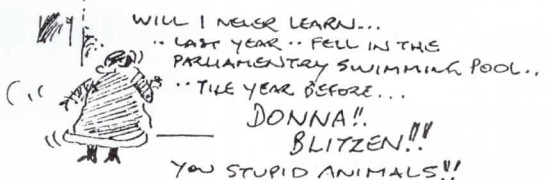 WILL I NEVER LEARN...
.. LAST YEAR .. FELL IN THE
PARLIAMENTRY SWIMMING POOL..
.. THE YEAR BEFORE...
DONNA!!
BLITZEN!!!
YOU STUPID ANIMALS!!